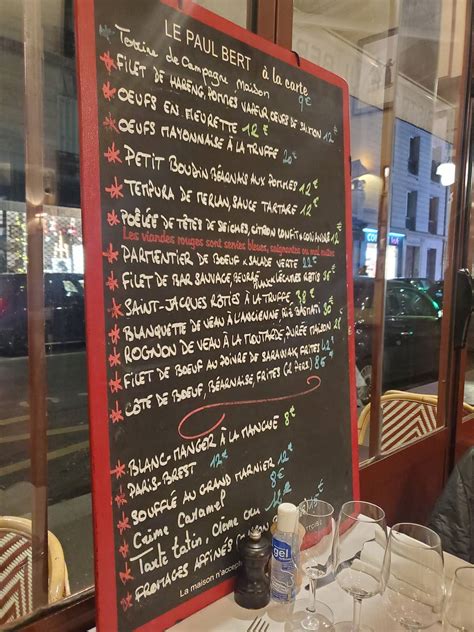 LE PAUL BERT à la carte
Terrine de Campagne Maison 9€
* FILET DE HARENG, POMMES VAPEUR OEUFS DE SAUMON 12€
* OEUFS EN MEURETTE 12€
* OEUFS MAYONNAISE À LA TRUFFE 20€
* PETIT BOUDIN BÉARNAIS AUX POMMES 12€
* TEMPURA DE MERLAN, SAUCE TARTARE 12€
* POÊLÉE DE TÊTES DE SEICHES, CITRON CONFIT & CORIANDRE 12€
Les viandes rouges sont servies bleues, saignantes ou mal cuites
* PARTENTIER DE BOEUF & SALADE VERTE
* FILET DE BAR SAUVAGE, BEURRE BLANC LÉGUMES RÔTIS 38€
* SAINT-JACQUES RÔTIES À LA TRUFFE 38€
* BLANQUETTE DE VEAU À L'ANCIENNE RIZ BASMATI
* ROGNON DE VEAU À LA MOUTARDE, PURÉE MAISON
* FILET DE BOEUF AU POIVRE DE SARAWAK, FRITES
* CÔTE DE BOEUF, BÉARNAISE, FRITES (2 Pers)
* BLANC MANGER À LA MANGUE 8€
* PARIS-BREST 12€
* SOUFFLÉ AU GRAND MARNIER 12€
* Crème Caramel 8€
* Tarte tatin, Crème 12€
* FROMAGES AFFINÉS
La maison n'accepte
gel